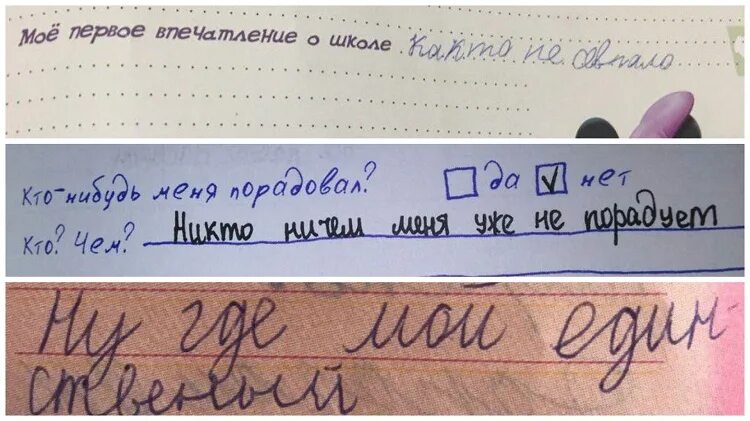 Моё первое впечатление о школе Както не совпало
Кто-нибудь меня порадовал? да нет
Кто? Чем? Никто ничем меня уже не порадует
Ну где мой един-
ственый